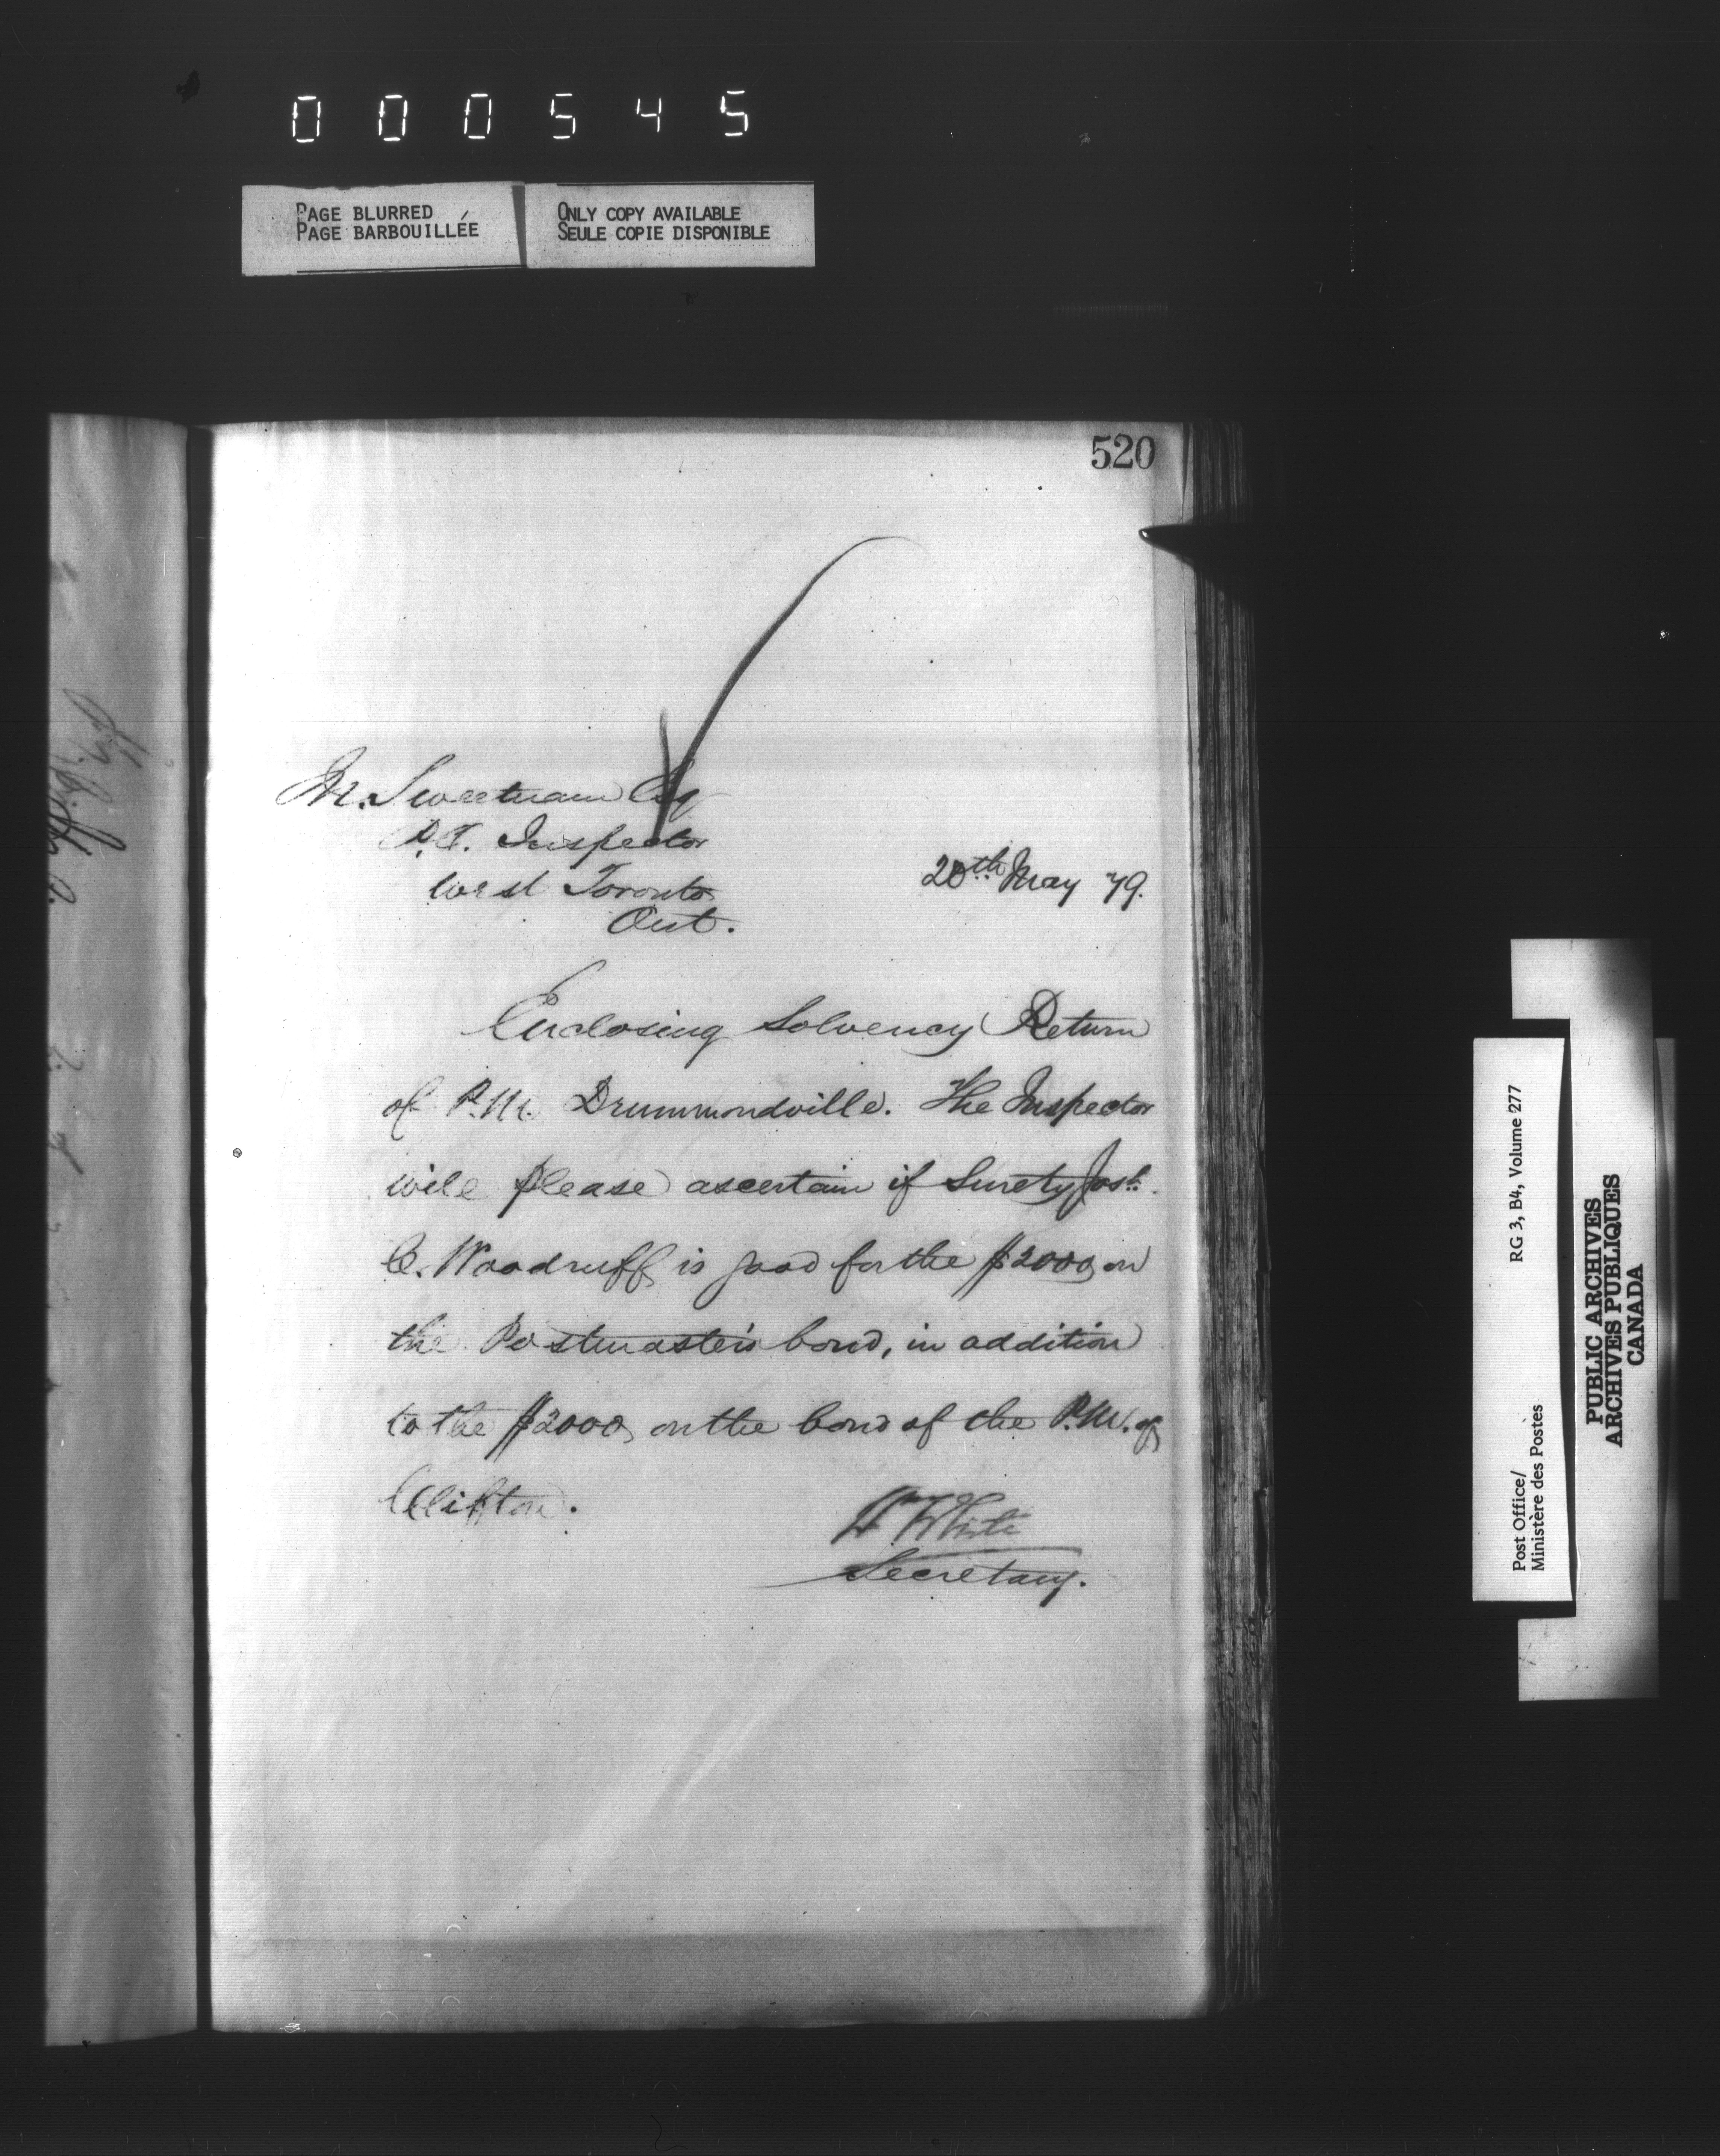 000545
PAGE BLURRED
PAGE BARBOUILLÉE
ONLY COPY AVAILABLE
SEULE COPIE DISPONIBLE
520
M. Sweetnam Esq
P.O. Inspector
West Toronto
Ont.
20th May 79.
Enclosing Solvency Return
of P.M. Drummondville. The Inspector
will please ascertain if Surety Josh.
C. Woodruff is good for the $2000 on
the Postmaster's bond, in addition
to the $2000 on the bond of the P.M. of
Clifton.
W White
Secretary.
Post Office/
Ministère des Postes
RG 3, B4, Volume 277
PUBLIC ARCHIVES
ARCHIVES PUBLIQUES
CANADA